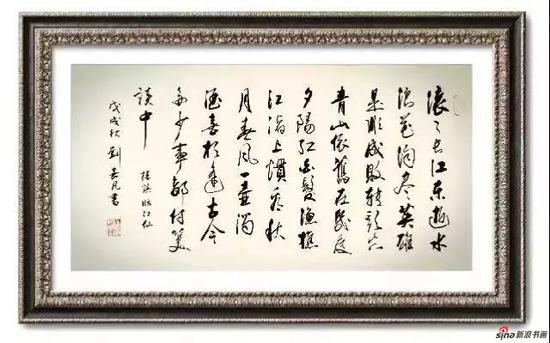 滚々长江东逝水
浪花淘尽英雄
是非成败转头空
青山依舊在几度
夕陽红白髮渔樵
江渚上惯看秋
月春风一壶浊
酒喜相逢古今
多少事都付笑
談中
楊慎临江仙
戊戌秋 劉凡書
sina新浪书画